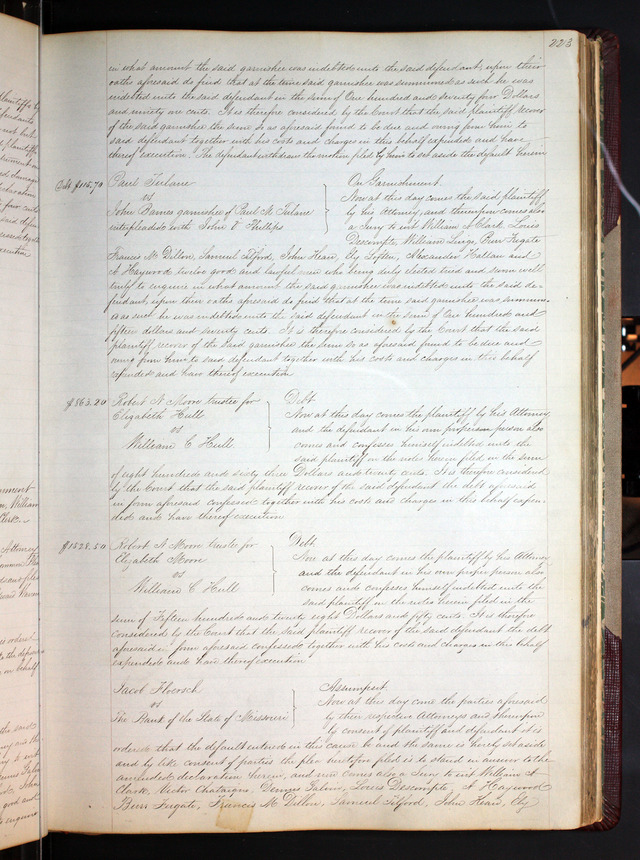 223
in what amount the said garnishee was indebted unto the said defendant, upon their
oaths aforesaid do find that at the time said garnishee was summoned as such he was
indebted unto the said defendant in the sum of One hundred and seventy four Dollars
and ninety one cents. It is therefore considered by the Court that the said plaintiff recover
of the said garnishee the sum so as aforesaid found to be due and owing from him to
said defendant together with his costs and charges in this behalf expended and have
thereof execution. The defendant withdraws the motion filed by him to set aside the default herein
Debt $115.70
Paul Tulane
vs
John Barnes garnishee of Paul N. Tulane
interpleaded with John O Phillips
On Garnishment.
Now at this day comes the said plaintiff
by his Attorney, and thereupon comes also
a Jury to wit William A Clark, Louis
Descompte, William Luige, Burr Fugate
Francis M. Dillon, Samuel Tilford, John Hean, Ely Soften, Alexander Hallam and
A Haywood twelve good and lawful men who being duly elected tried and sworn well
truly to enquire in what amount the said garnishee was indebted unto the said de-
fendant, upon their oaths aforesaid do find that at the time said garnishee was summon-
ed as such he was indebted unto the said defendant in the sum of One hundred and
fifteen dollars and seventy cents. It is therefore considered by the Court that the said
plaintiff recover of the said garnishee the sum so as aforesaid found to be due and
owing from him to said defendant together with his costs and charges in this behalf
expended and have thereof execution
$863.20
Robert N Moore trustee for
Elizabeth Hull
vs
William C Hull
Debt
Now at this day comes the plaintiff by his Attorney
and the defendant in his own proper person also
comes and confesses himself indebted unto the
said plaintiff in the notes herein filed in the sum
of eight hundred and sixty three Dollars and twenty cents. It is therefore considered
by the Court that the said plaintiff recover of the said defendant the debt aforesaid
in form aforesaid confessed together with his costs and charges in this behalf expen-
ded and have thereof execution
$1528.50
Robert N Moore trustee for
Elizabeth Moore
vs
William C Hull
Debt
Now at this day comes the plaintiff by his Attorney
and the defendant in his own proper person also
comes and confesses himself indebted unto the
said plaintiff in the notes herein filed in the
sum of Fifteen hundred and twenty eight Dollars and fifty cents. It is therefore
considered by the Court that the said plaintiff recover of the said defendant the debt
aforesaid in form aforesaid confessed together with his costs and charges in this behalf
expended and have thereof execution
Jacob Floersch
vs
The Bank of the State of Missouri
Assumpsit
Now at this day come the parties aforesaid
by their respective Attorneys and thereupon
by consent of plaintiff and defendant it is
ordered that the default entered in this cause be and the same is hereby set aside
and by like consent of parties the plea heretofore filed is to stand in answer to the
amended declaration herein, and now comes also a Jury to wit William A
Clark, Victor Chataign, Dennis Galvin, Louis Descompte, A Haywood
Burr Fugate, Francis M Dillon, Samuel Tilford, John Hean, Ely